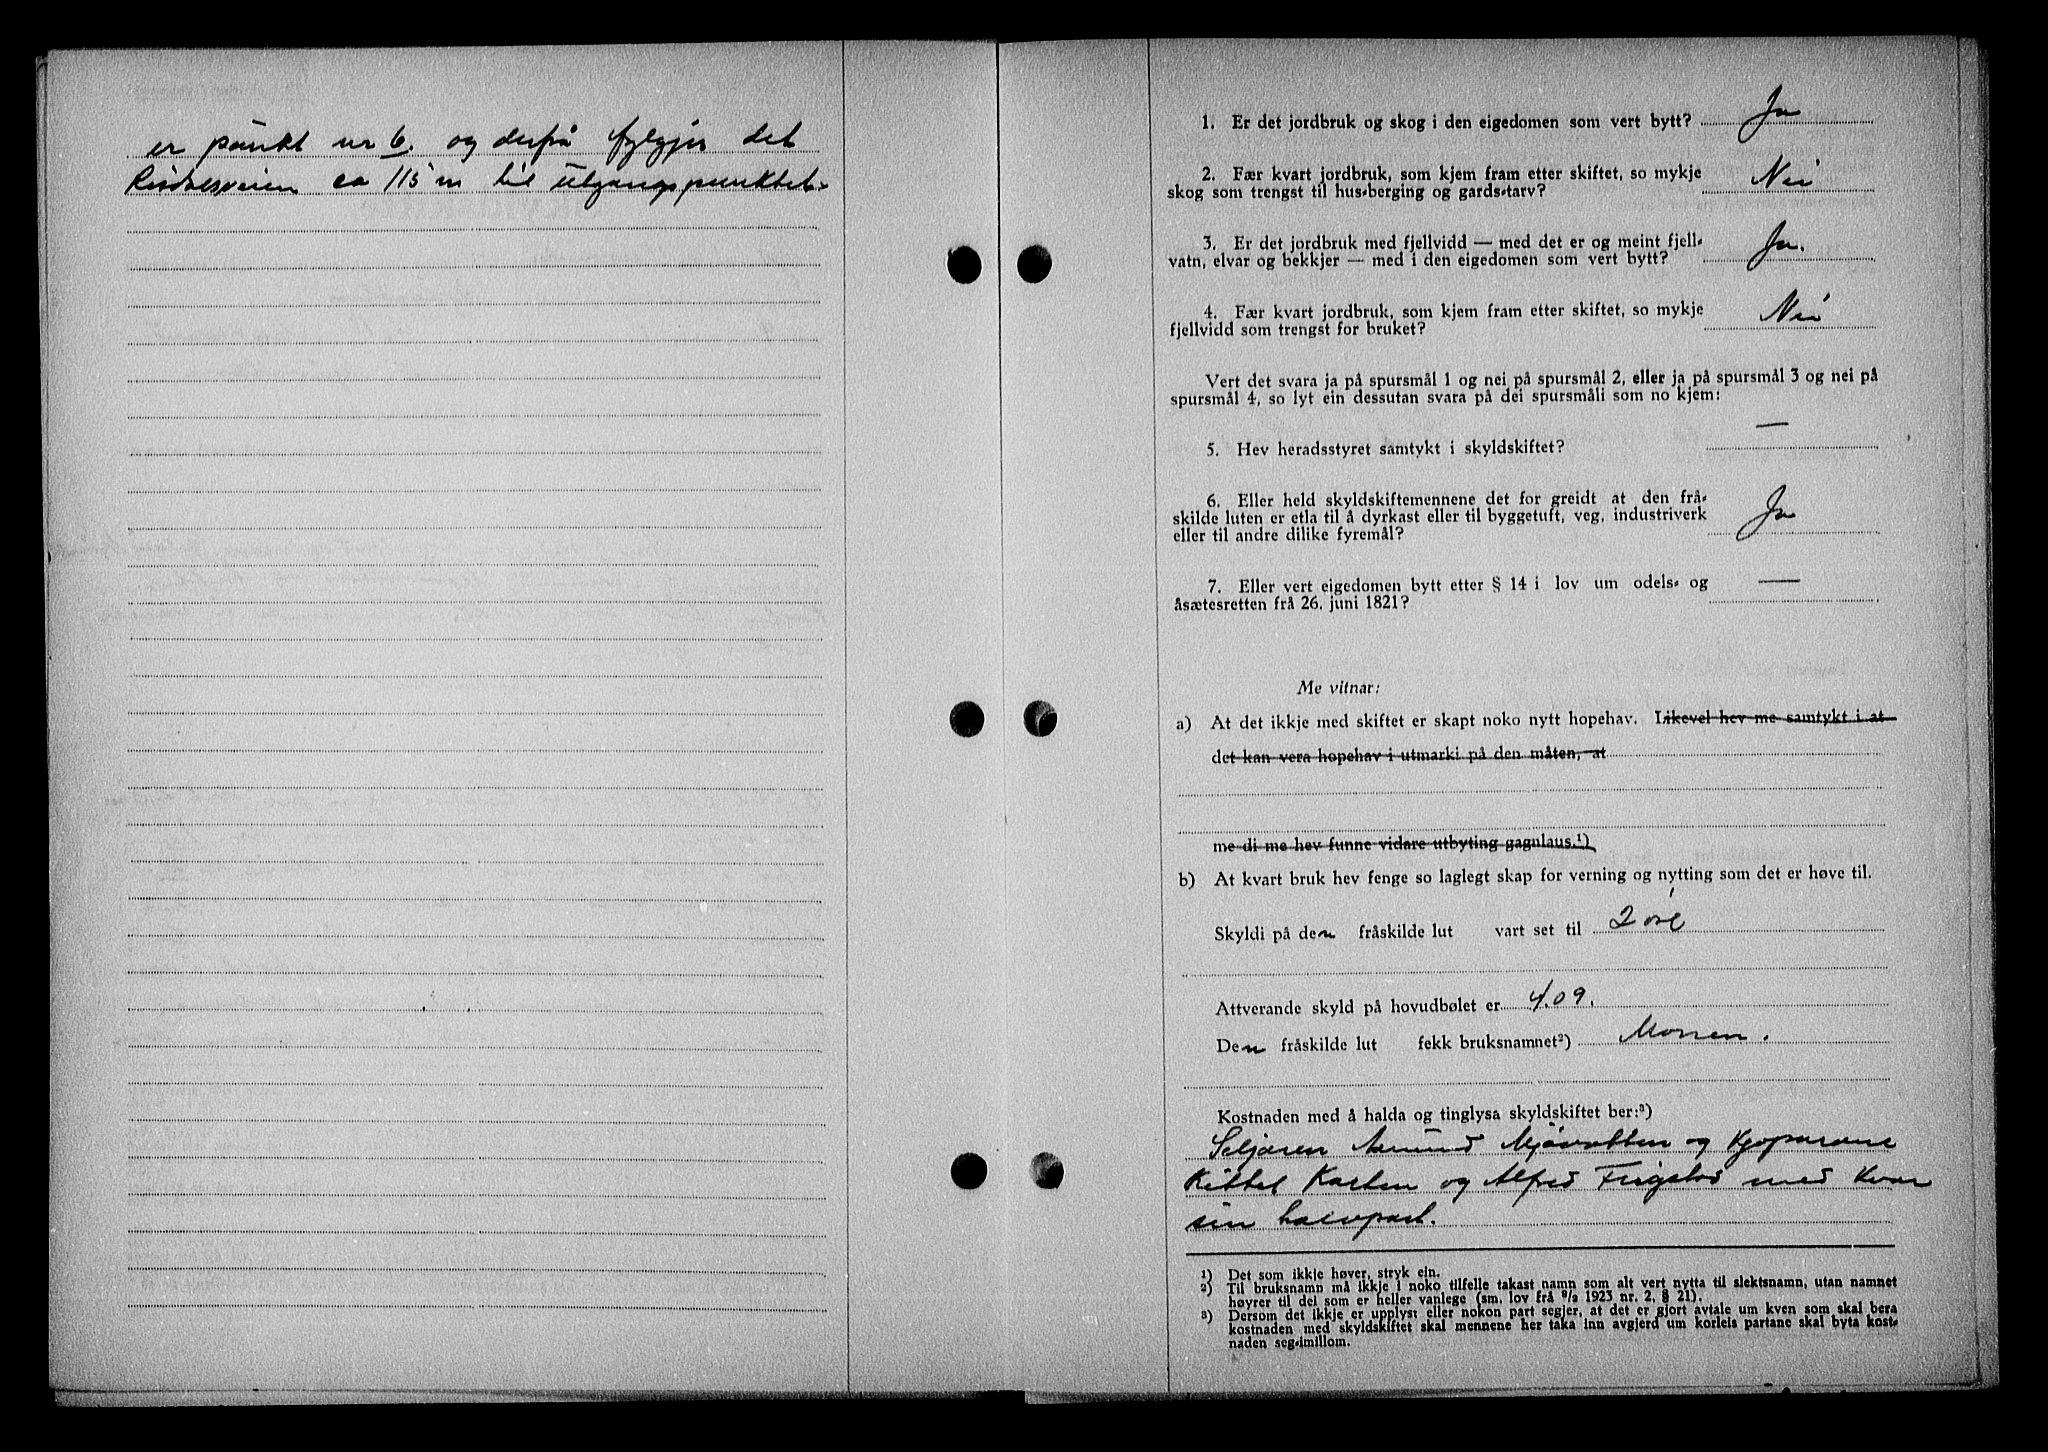 er punkt nr 6. og derfrå fylgjer det
Risdalsveien ca 115 m til utgangspunktet.
1. Er det jordbruk og skog i den eigedomen som vert bytt? Ja
2. Fær kvart jordbruk, som kjem fram etter skiftet, so mykje
skog som trengst til hus-berging og gards-tarv? Nei
3. Er det jordbruk med fjellvidd — med det er og meint fjell-
vatn, elvar og bekkjer — med i den eigedomen som vert bytt? Ja.
4. Fær kvart jordbruk, som kjem fram etter skiftet, so mykje
fjellvidd som trengst for bruket? Nei
Vert det svara ja på spursmål 1 og nei på spursmål 2, eller ja på spursmål 3 og nei på
spursmål 4, so lyt ein dessutan svara på dei spursmåli som no kjem:
5. Hev heradsstyret samtykt i skyldskiftet? —
6. Eller held skyldskiftemennene det for greidt at den frå-
skilde luten er etla til å dyrkast eller til byggetuft, veg, industriverk
eller til andre dilike fyremål? Ja
7. Eller vert eigedomen bytt etter § 14 i lov um odels- og
åsætesretten frå 26. juni 1821? —
Me vitnar:
a) At det ikkje med skiftet er skapt noko nytt hopehav. Likevel hev me samtykt i at
det kan vera hopehav i utmarki på den måten, at
me di me hev funne vidare utbyting gagnlaus.¹)
b) At kvart bruk hev fenge so laglegt skap for verning og nytting som det er høve til.
Skyldi på den fråskilde lut vart set til 2 øre
Attverande skyld på hovudbølet er 4.09.
Den fråskilde lut fekk bruksnamnet²) Monen.
Kostnaden med å halda og tinglysa skyldskiftet ber:³)
Seljaren Aamund Mjåvatten og Kjøparane
Kittel Karlsen og Alfred Frigstad med kvar
sin halvpart.
¹) Det som ikkje høver, stryk ein.
²) Til bruksnamn må ikkje i noko tilfelle takast namn som alt vert nytta til slektsnamn, utan namnet
høyrer til dei som er heller vanlege (sm. lov frå ⁹/₂ 1923 nr. 2, § 21).
³) Dersom det ikkje er upplyst eller nokon part segjer, at det er gjort avtale um kven som skal bera
kostnaden med skyldskiftet skal mennene her taka inn avgjerd um korleis partane skal byta kost-
naden seg-imillom.